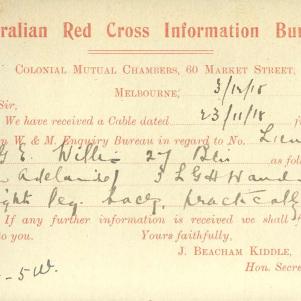 ralian Red Cross Information Bur
COLONIAL MUTUAL CHAMBERS, 60 MARKET STREET,
MELBOURNE, 3/12/18
Sir,
We have received a Cable dated 23/11/18 f
n W. & M. Enquiry Bureau in regard to No. Lieu
G E. Willis 27 Bn as follo
Adelaide 3 L G H Wand
ight leg. back, practicall
If any further information is received we shall f
to you. Yours faithfully,
J. BEACHAM KIDDLE,
Hon. Secre